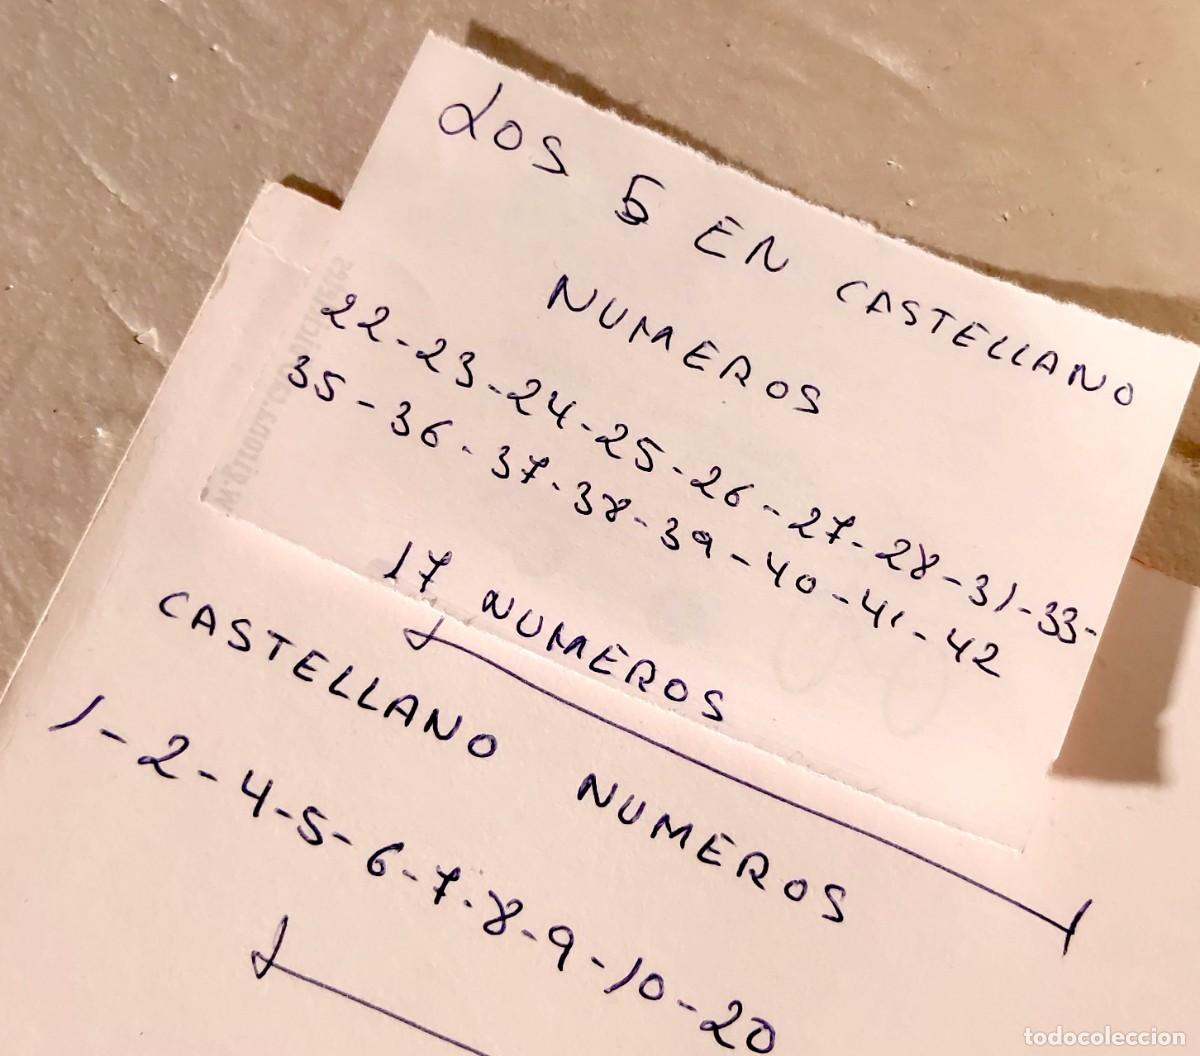 LOS 5 EN CASTELLANO
NUMEROS
22-23-24-25-26-27-28-31-33-
35-36-37-38-39-40-41-42
17 NUMEROS
CASTELLANO NUMEROS
1-2-4-5-6-7-8-9-10-20
todocoleccion